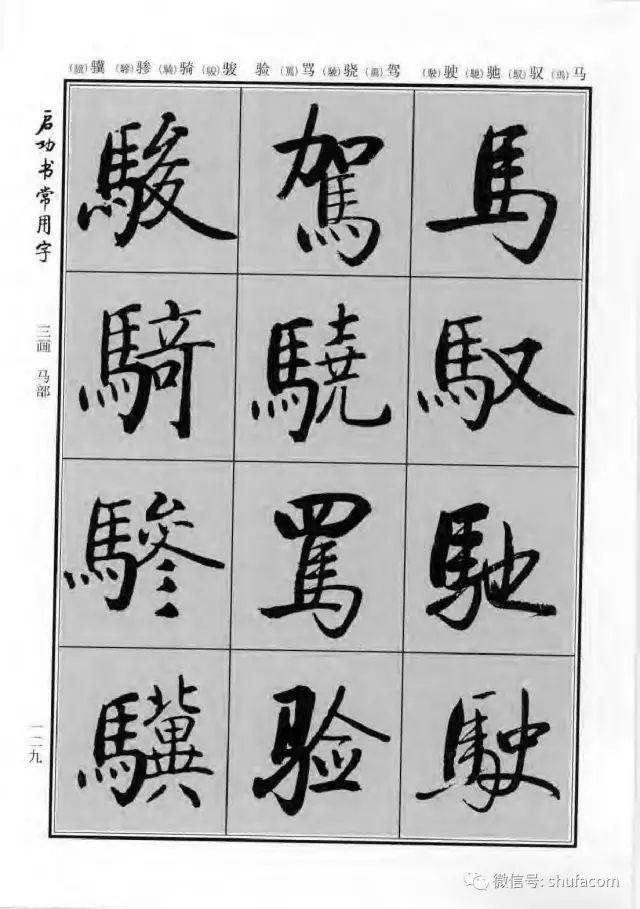 (驥)骥 (驂)骖 (騎)骑 (駿)骏 验 (罵)骂 (驍)骁 (駕)驾 (駛)驶 (馳)驰 (馭)驭 (馬)马
启功书常用字
三画 马部
一二九
馬 馭 馳 駛
駕 驍 罵 验
駿 騎 驂 驥
微信号: shufacom